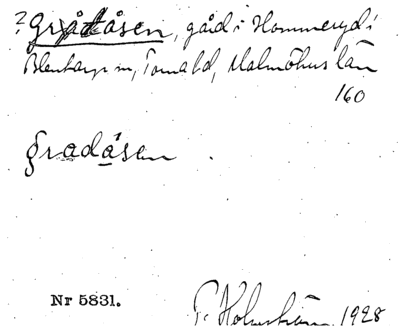 ? Gråtåsen, gård i Hommeryd i
Blentarps sn, Torna hd, Malmöhus län
160
gradåsen
Nr 5831. 1928